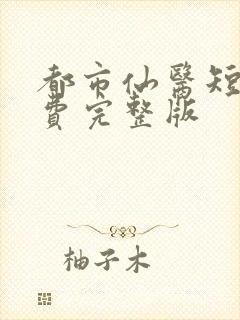 都市仙醫短
費完整版
柚子木